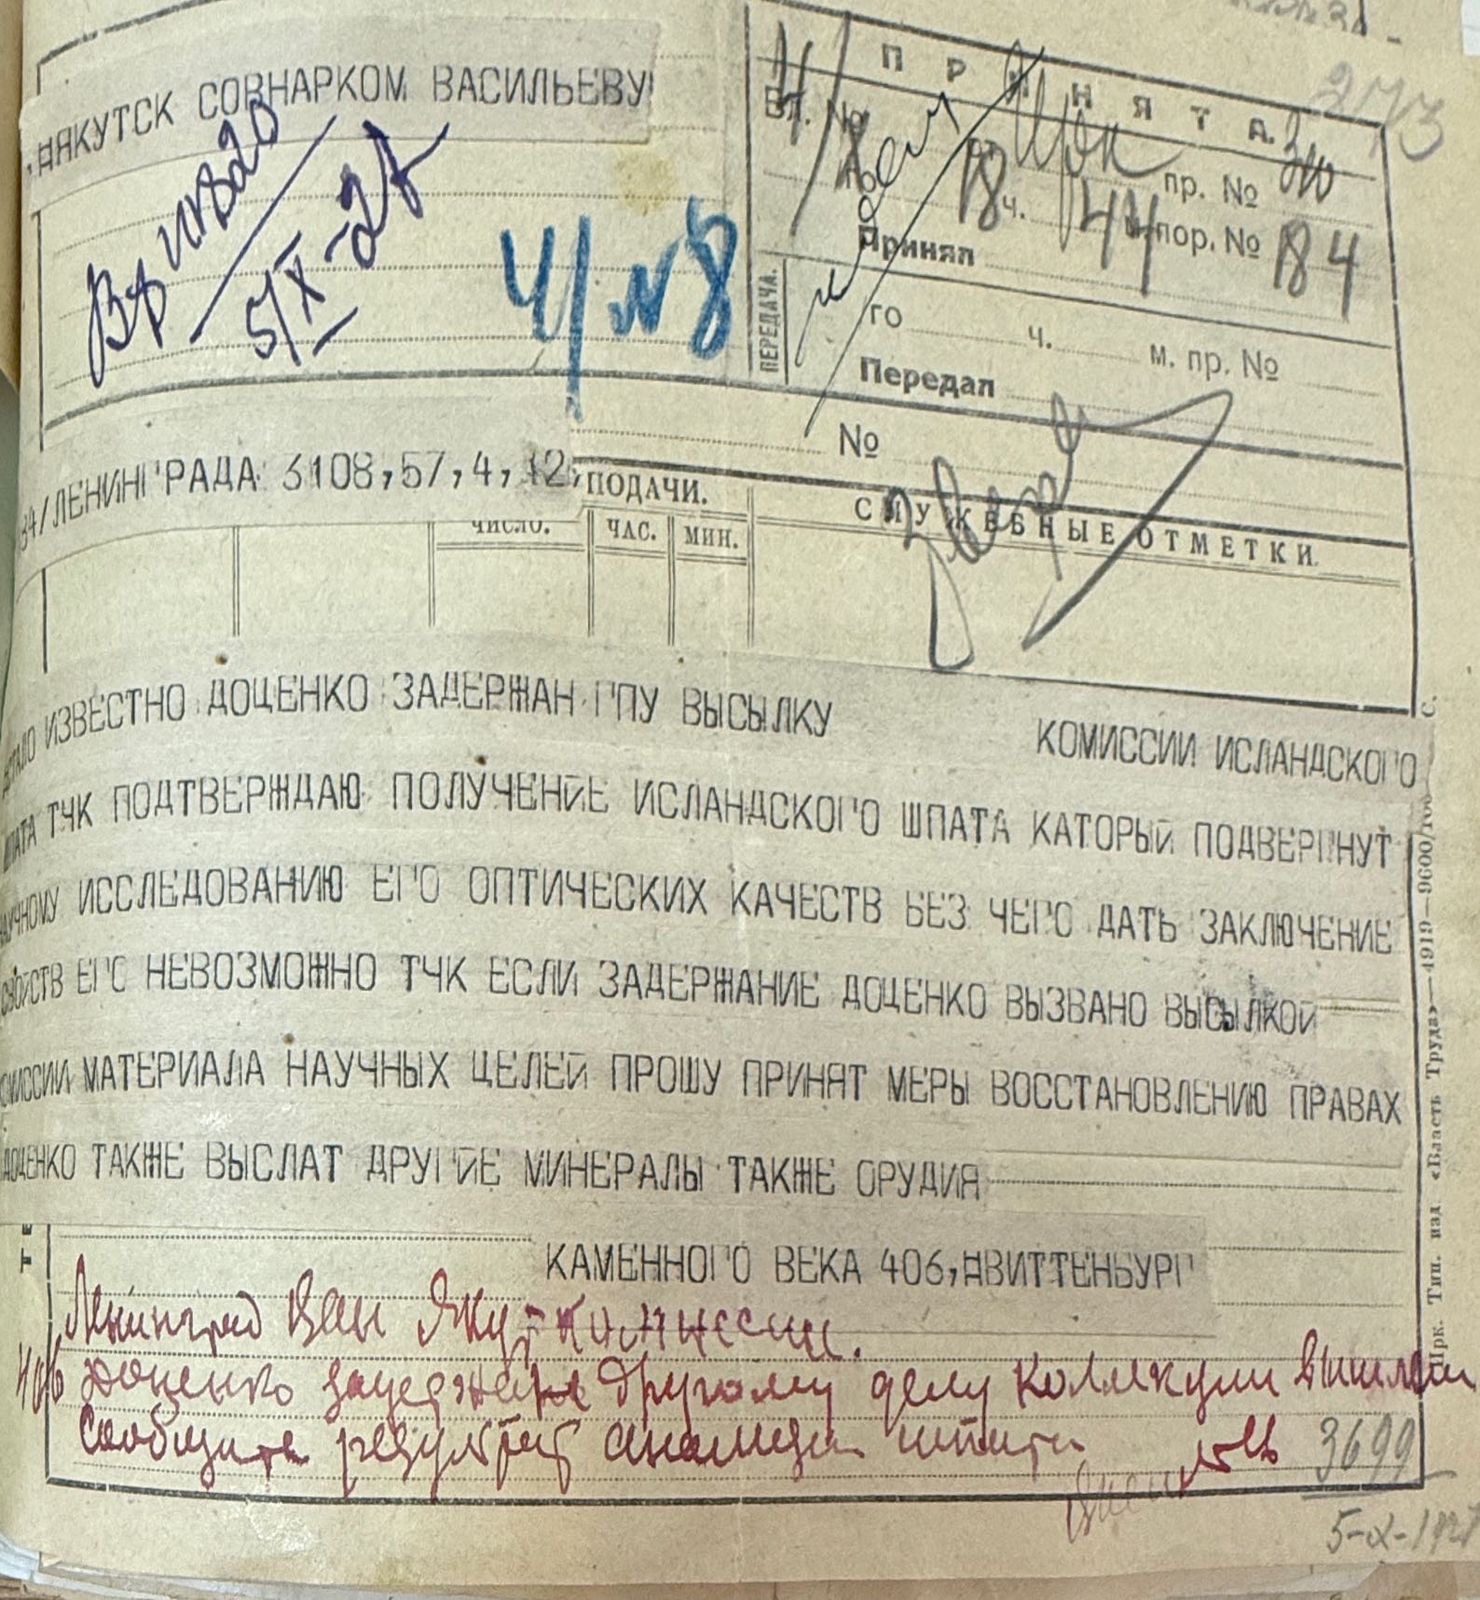 273
ПРИНЯТА.
ЯКУТСК СОВНАРКОМ ВАСИЛЬЕВУ
Вл. №
пр. №
го 18 ч. 44 м. пор. № 184
Принял
5/IX-27
4/№8
ПЕРЕДАЧА.
го ч. м. пр. №
Передал
№
84/ЛЕНИНГРАДА 3108,57,4,12,
ПОДАЧИ.
ЧИСЛО. ЧАС. МИН.
СЛУЖЕБНЫЕ ОТМЕТКИ.
ИЗВЕСТНО ДОЦЕНКО ЗАДЕРЖАН ГПУ ВЫСЫЛКУ КОМИССИИ ИСЛАНДСКОГО
ШПАТА ТЧК ПОДТВЕРЖДАЮ ПОЛУЧЕНИЕ ИСЛАНДСКОГО ШПАТА КАТОРЫЙ ПОДВЕРГНУТ
НАУЧНОМУ ИССЛЕДОВАНИЮ ЕГО ОПТИЧЕСКИХ КАЧЕСТВ БЕЗ ЧЕГО ДАТЬ ЗАКЛЮЧЕНИЕ
СВОЙСТВ ЕГО НЕВОЗМОЖНО ТЧК ЕСЛИ ЗАДЕРЖАНИЕ ДОЦЕНКО ВЫЗВАНО ВЫСЫЛКОЙ
КОМИССИИ МАТЕРИАЛА НАУЧНЫХ ЦЕЛЕЙ ПРОШУ ПРИНЯТ МЕРЫ ВОССТАНОВЛЕНИЮ ПРАВАХ
ДОЦЕНКО ТАКЖЕ ВЫСЛАТ ДРУГИЕ МИНЕРАЛЫ ТАКЖЕ ОРУДИЯ
КАМЕННОГО ВЕКА 406, ВИТТЕНБУРГ
Ленинград Якут комиссии.
406 Доценко задержан другому делу коллекции вышлем
сообщите результат анализа шпата
3699
Ирк. Тип. изд. «Власть Труда»—4919—9600/100 С.